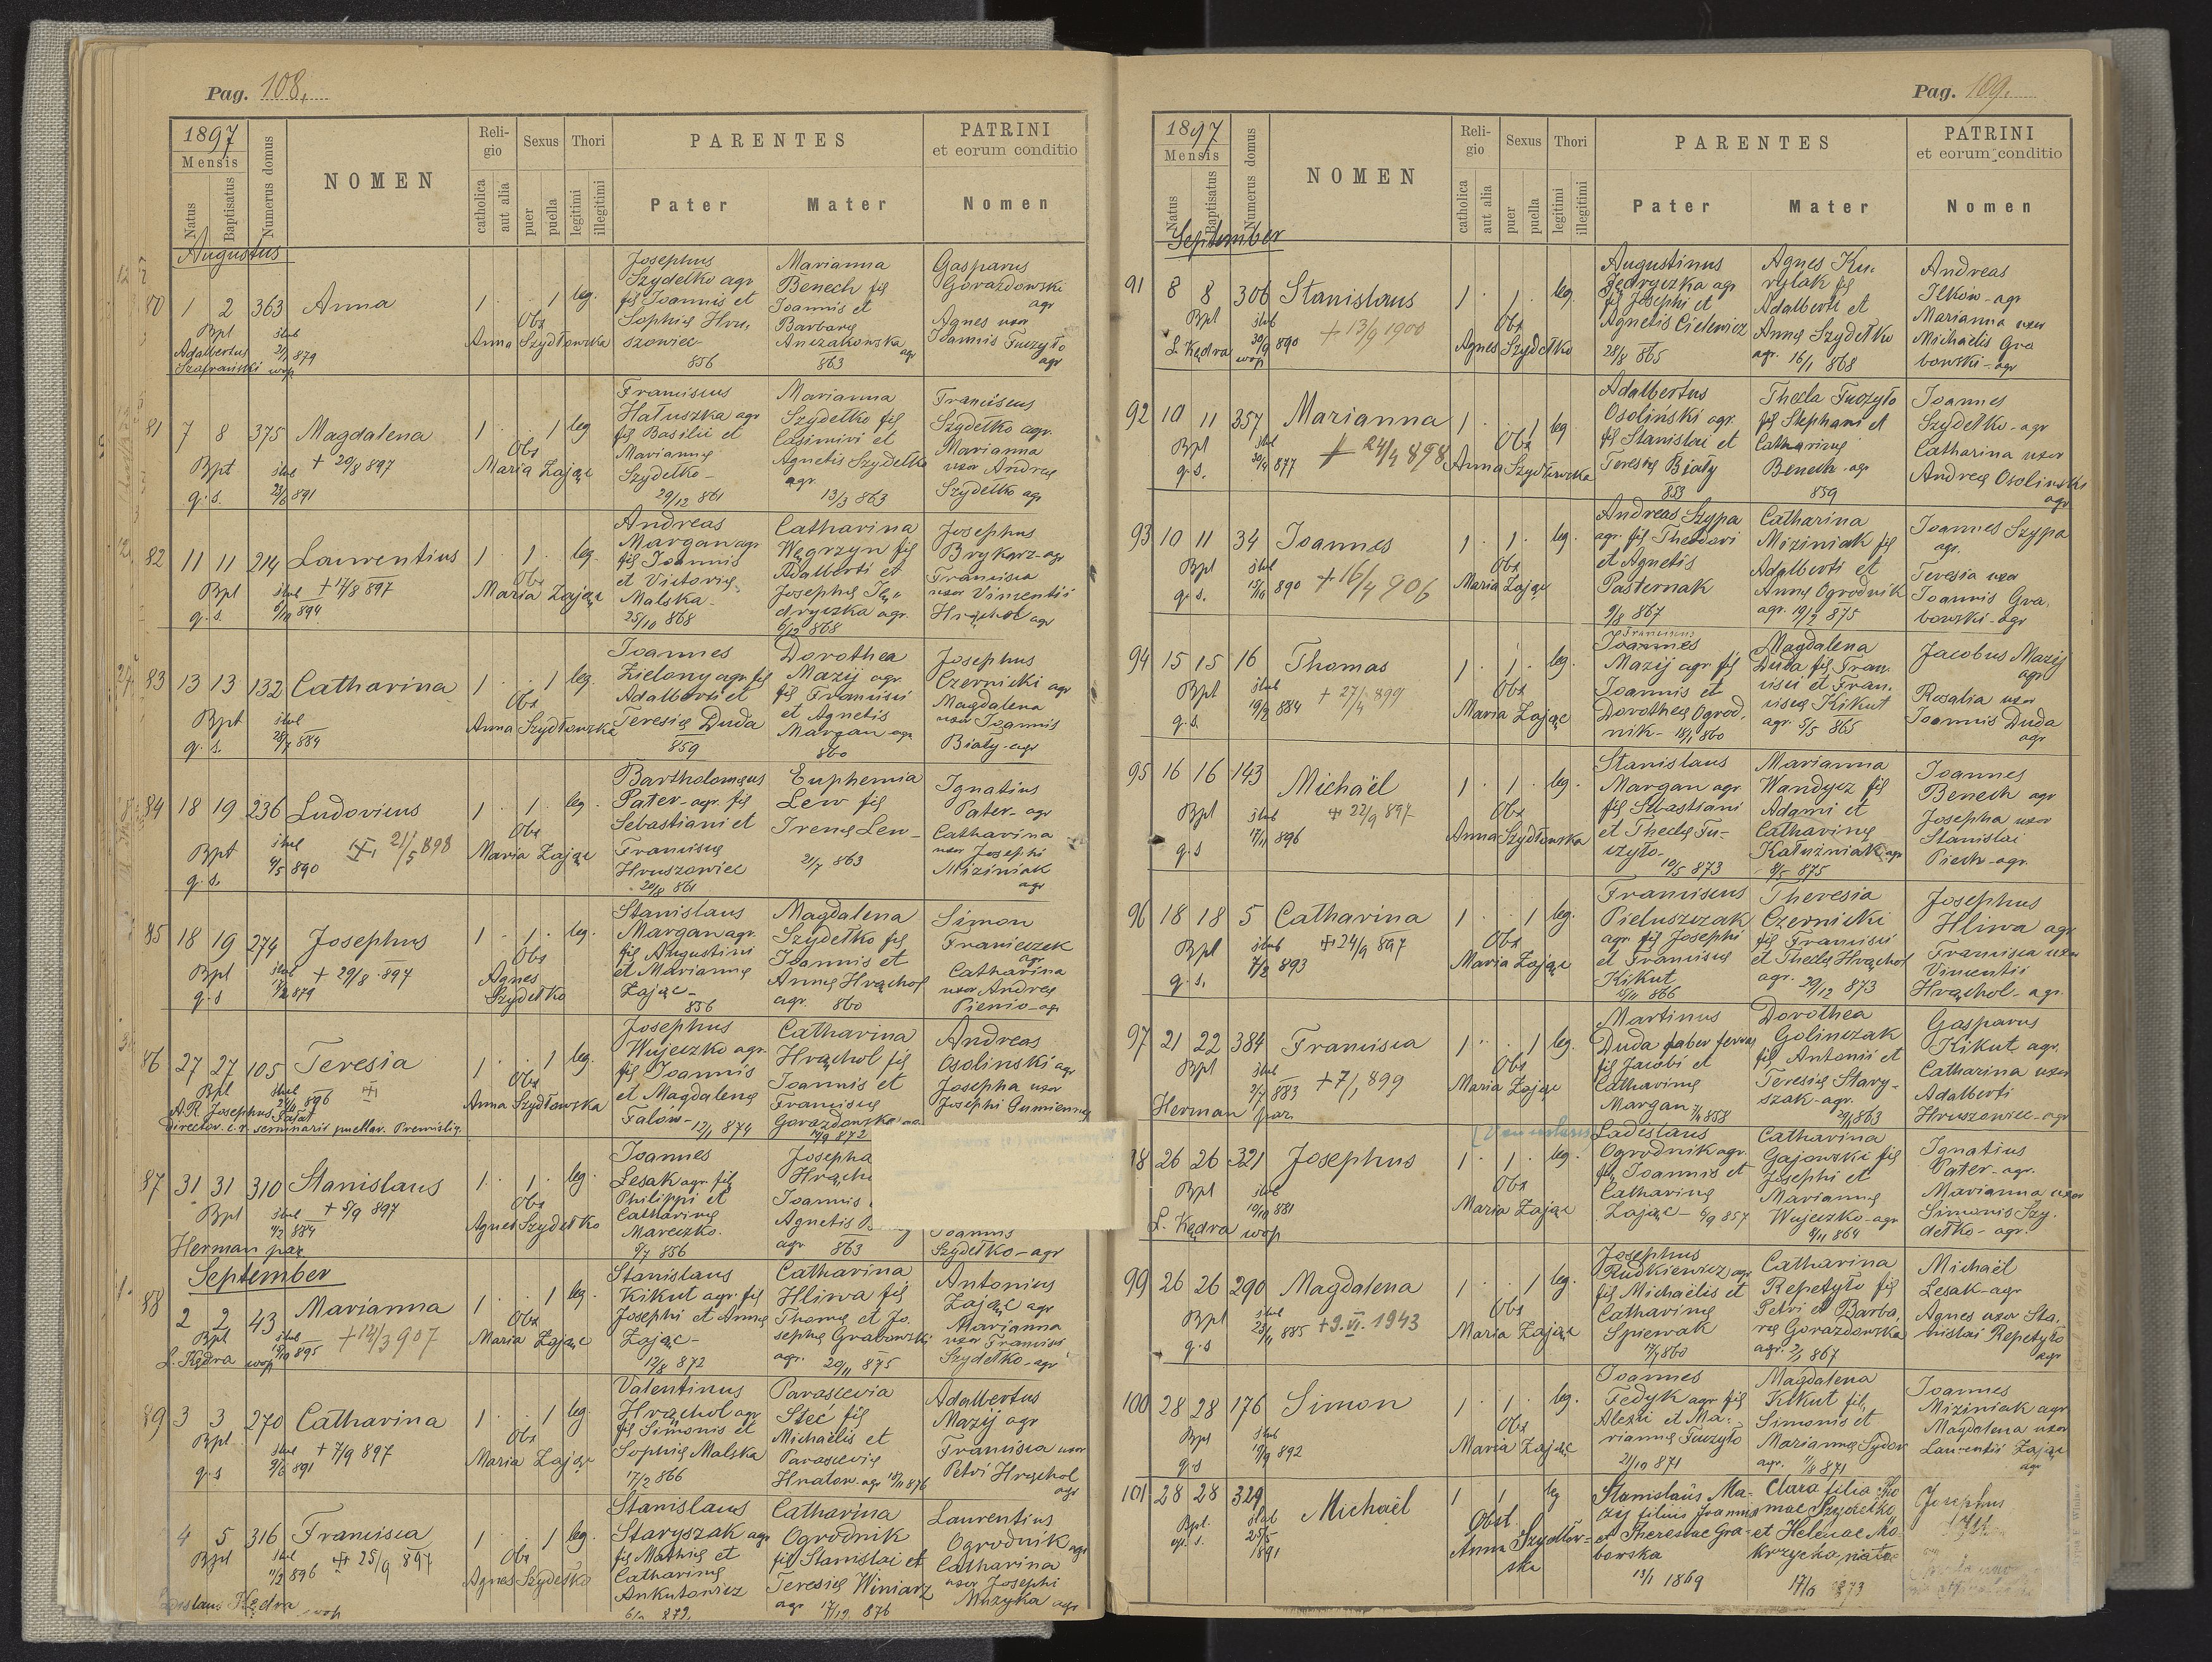 Pag. 108.
1897
Mensis
Natus
Baptisatus
Numerus domus
NOMEN
Religio
catholica
aut alia
Sexus
puer
puella
Thori
legitimi
illegitimi
PARENTES
Pater
Mater
PATRINI
et eorum conditio
Nomen
Augustus
80 1 2 363 Anna 1 1 leg.
Bpt ślub Obs
Adalbertus 879 Anna Szydłowska
Szafrański wop
Josephus
Szydełko agr
fil Joannis et
Sophię Hru-
szowiec
856
Marianna
Benech fil
Joannis et
Barbarę
Anczakowska
agr
863
Gasparus
Gorazdowski
agr
Agnes uxor
Joannis Tuczyło
agr
81 7 8 375 Magdalena 1 1 leg
+ 20/8 897
Bpt ślub Obs
q. s. 891 Maria Zając
Franciscus
Hałuszka agr
fil Basilii et
Mariannę
Szydełko -
29/12 861
Marianna
Szydełko fil
Casimiri et
Agnetis Szydełko
agr.
13/3 863
Franciscus
Szydełko agr.
Marianna
uxor Andreę
Szydełko agr
82 11 11 214 Laurentius 1 1 leg.
+ 17/8 897
Bpt ślub Obs
q. s. 894 Maria Zając
Andreas
Margan agr
fil Joannis
et Victorię
Malska -
25/10 868
Catharina
Węgrzyn fil
Adalberti et
Josephę Ję-
dryczka agr.
6/12 868
Josephus
Brykarz - agr
Francisca
uxor Vincentii
Hrąchol agr
83 13 13 132 Catharina 1 1 leg.
Bpt ślub Obs
q. s. 28/7 884 Anna Szydłowska
Joannes
Zielony agr fil
Adalberti et
Teresię Duda
859
Dorothea
Mazij agr.
fil Francisci
et Agnetis
Margan agr.
860
Josephus
Czernicki agr
Magdalena
uxor Joannis
Biały - agr
84 18 19 236 Ludovicus 1 1 leg.
21/5 898
Bpt ślub Obs
q. s. 4/5 890 Maria Zając
Bartholomęus
Pater - agr. fil
Sebastiani et
Franciscę
Hruszowiec
20/8 861
Euphemia
Lew fil
Irenę Lew -
21/7 863
Ignatius
Pater - agr
Catharina
uxor Josephi
Miziniak
agr
85 18 19 274 Josephus 1 1 leg.
+ 29/8 897
Bpt ślub Obs
q. s 879 Agnes
Szydełko
Stanislaus
Margan agr.
fil Augustini
et Mariannę
Zając -
856
Magdalena
Szydełko fil
Joannis et
Annę Hrąchol
agr. 860
Simon
Franiczek
agr
Catharina
uxor Andreę
Pienio - agr
86 27 27 105 Teresia 1 1 leg.
Bpt ślub 896 Obs
A. R. Josephus Anna Szydłowska
Director c. r. seminarii puellar. Premislię.
Josephus
Wujeczko agr.
fil Joannis
et Magdalenę
Falów - 12/1 874
Catharina
Hrąchol fil
Joannis et
Franciscę
Gorazdowska
872
Andreas
Osolinski agr
Josepha uxor
Josephi Gumienny
87 31 31 310 Stanislaus 1 1 leg.
+ 5/9 897
Bpt ślub Obs
884 Agnes Szydełko
Herman par.
Joannes
Lesak agr. fil
Philippi et
Catharinę
Mareczko.
9/7 856
Josepha
Joannis
Agnetis
agr 863
Joannis
Szydełko - agr
September
88 2 2 43 Marianna 1 1 leg.
+ 12/3 907
Bpt ślub Obs
L. Kędra wop 895 Maria Zając
Stanislaus
Kikut agr. fil
Josephi et Annę
Zając -
12/8 872
Catharina
Hliwa fil
Thomę et Jo-
sephę Grabowski
agr. 20/11 875
Antonius
Zając agr
Marianna
uxor Francisci
Szydełko - agr
89 3 3 270 Catharina 1 1 leg
+ 7/9 897
Bpt ślub Obs
q. s 891 Maria Zając
Valentinus
Hrąchol agr
fil Simonis et
Sophię Malska
17/2 866
Parascevia
Steć fil
Michaelis et
Parascevię
Hnatow. agr 876
Adalbertus
Mazij agr
Francisca uxor
Petri Hrąchol
agr
4 5 316 Francisca 1 1 leg.
25/9 897
Bpt ślub Obs
896 Agnes Szydełko
Kędra wop
Stanislaus
Staryszak agr
fil Mathię et
Catharinę
Ankutowicz
Catharina
Ogrodnik
fil Stanislai et
Teresię Winiarz
agr 876
Laurentius
Ogrodnik agr
Catharina
uxor Josephi
Muzyka agr
Pag. 109.
1897
Mensis
Natus
Baptisatus
Numerus domus
NOMEN
Religio
catholica
aut alia
Sexus
puer
puella
Thori
legitimi
illegitimi
PARENTES
Pater
Mater
PATRINI
et eorum conditio
Nomen
September
91 8 8 306 Stanislaus 1 1 leg.
+ 13/9 1900
Bpt ślub Obs
L. Kędra wop 30/9 890 Agnes Szydełko
Augustinus
Jędryczka agr
fil Josephi et
Agnetis Cielewicz
28/8 865
Agnes Ku-
rylak fil
Adalberti et
Annę Szydełko
agr. 16/1 868
Andreas
Ilków - agr
Marianna uxor
Michaelis Gra
bowski - agr
92 10 11 357 Marianna 1 1 leg
+ 24/4 898
Bpt ślub Obs
q. s. 877 Anna Szydłowska
Adalbertus
Osoliński agr.
fil Stanislai et
Teresię Biały
853
Thecla Tuczyło
fil Stephani et
Catharinę
Benech - agr
859
Joannes
Szydełko - agr
Catharina uxor
Andreę Osolinski
agr
93 10 11 34 Joannes 1 1 leg.
+ 16/4 906
Bpt ślub Obs
q. s. 890 Maria Zając
Andreas Szypa
agr. fil Theodori
et Agnetis
Pasternak
9/8 867
Catharina
Miziniak fil
Adalberti et
Annę Ogrodnik
agr. 19/2 875
Joannes Szypa
agr.
Teresia uxor
Joannis Gra-
bowski - agr
94 15 15 16 Thomas 1 1 leg.
+ 27/4 899
Bpt ślub Obs
q. s. 19/2 884 Maria Zając
Franciscus
Joannes
Mazij agr fil
Joannis et
Dorotheę Ogrod-
nik - 18/1 860
Magdalena
Duda fil Fran-
cisci et Fran-
ciscę Kikut
agr. 5/5 865
Jacobus Mazij
agr
Rosalia uxor
Joannis Duda
agr
95 16 16 143 Michaël 1 1 leg.
22/9 897
Bpt ślub Obs
q. s 17/11 896 Anna Szydłowska
Stanislaus
Margan agr
fil Sebastiani
et Theclę Tu-
czyło -
10/5 873
Marianna
Wandycz fil
Adami et
Catharinę
Kałuzniak agr
9/5 875
Joannes
Benech agr
Josepha uxor
Stanislai
Piech - agr.
96 18 18 5 Catharina 1 1 leg.
24/9 897
Bpt ślub Obs
q. s. 7/2 893 Maria Zając
Franciscus
Pieluszczak
agr. fil Josephi
et Franciscę
Kikut
866
Theresia
Czernicki
fil Francisci
et Theclę Hrąchol
agr. 29/12 873
Josephus
Hliwa agr
Francisca uxor
Vincentii
Hrąchol - agr.
97 21 22 384 Francisca 1 1 leg.
+ 7/1 899
Bpt ślub Obs
2/7 883 Maria Zając
Herman par.
Martinus
Duda faber ferrar
fil Jacobi et
Catharinę
Margan 858
Dorothea
Golinczak
fil Antonii et
Teresię Stary-
szak - agr.
863
Gasparus
Kikut agr.
Catharina uxor
Adalberti
Hruszowiec - agr
98 26 26 321 Josephus 1 1 leg.
Bpt ślub Obs
L. Kędra wop 881 Maria Zając
Ladislaus
Ogrodnik agr.
fil Joannis et
Catharinę
Zając - 6/9 857
Catharina
Gajowski fil
Josephi et
Mariannę
Wujeczko - agr
9/11 864
Ignatius
Pater - agr.
Marianna uxor
Simonis Szy-
dełko - agr.
99 26 26 290 Magdalena 1 1 leg.
+ 9. VI. 1943
Bpt ślub Obs
q. s 885 Maria Zając
Josephus
Rudkiewicz agr
fil Michaelis et
Catharinę
Spiewak
860
Catharina
Repetyło fil
Petri et Barba-
rę Gorazdowska
agr. 2/1 867
Michaël
Lesak - agr
Agnes uxor Sta-
nislai Repetyło
agr
100 28 28 176 Simon 1 1 leg.
Bpt ślub Obs
q s 892 Maria Zając
Joannes
Fedyk agr fil
Alexii et Ma-
riannę Tuczyło
21/10 871
Magdalena
Kikut fil.
Simonis et
Mariannę Sydor
agr. 871
Joannes
Miziniak agr
Magdalena uxor
Laurentii Zając
agr
101 28 28 329 Michaël 1 1 leg
Bpt. ślub Obst.
1891 Anna Szydłow-
ska
Stanislaus Ma-
zij filius Joannis
et Theresae Gra-
bowska
13/1 1869
Clara filia Tho
mae Szydełko
et Helenae Mo
krzycka, nata
Josephus